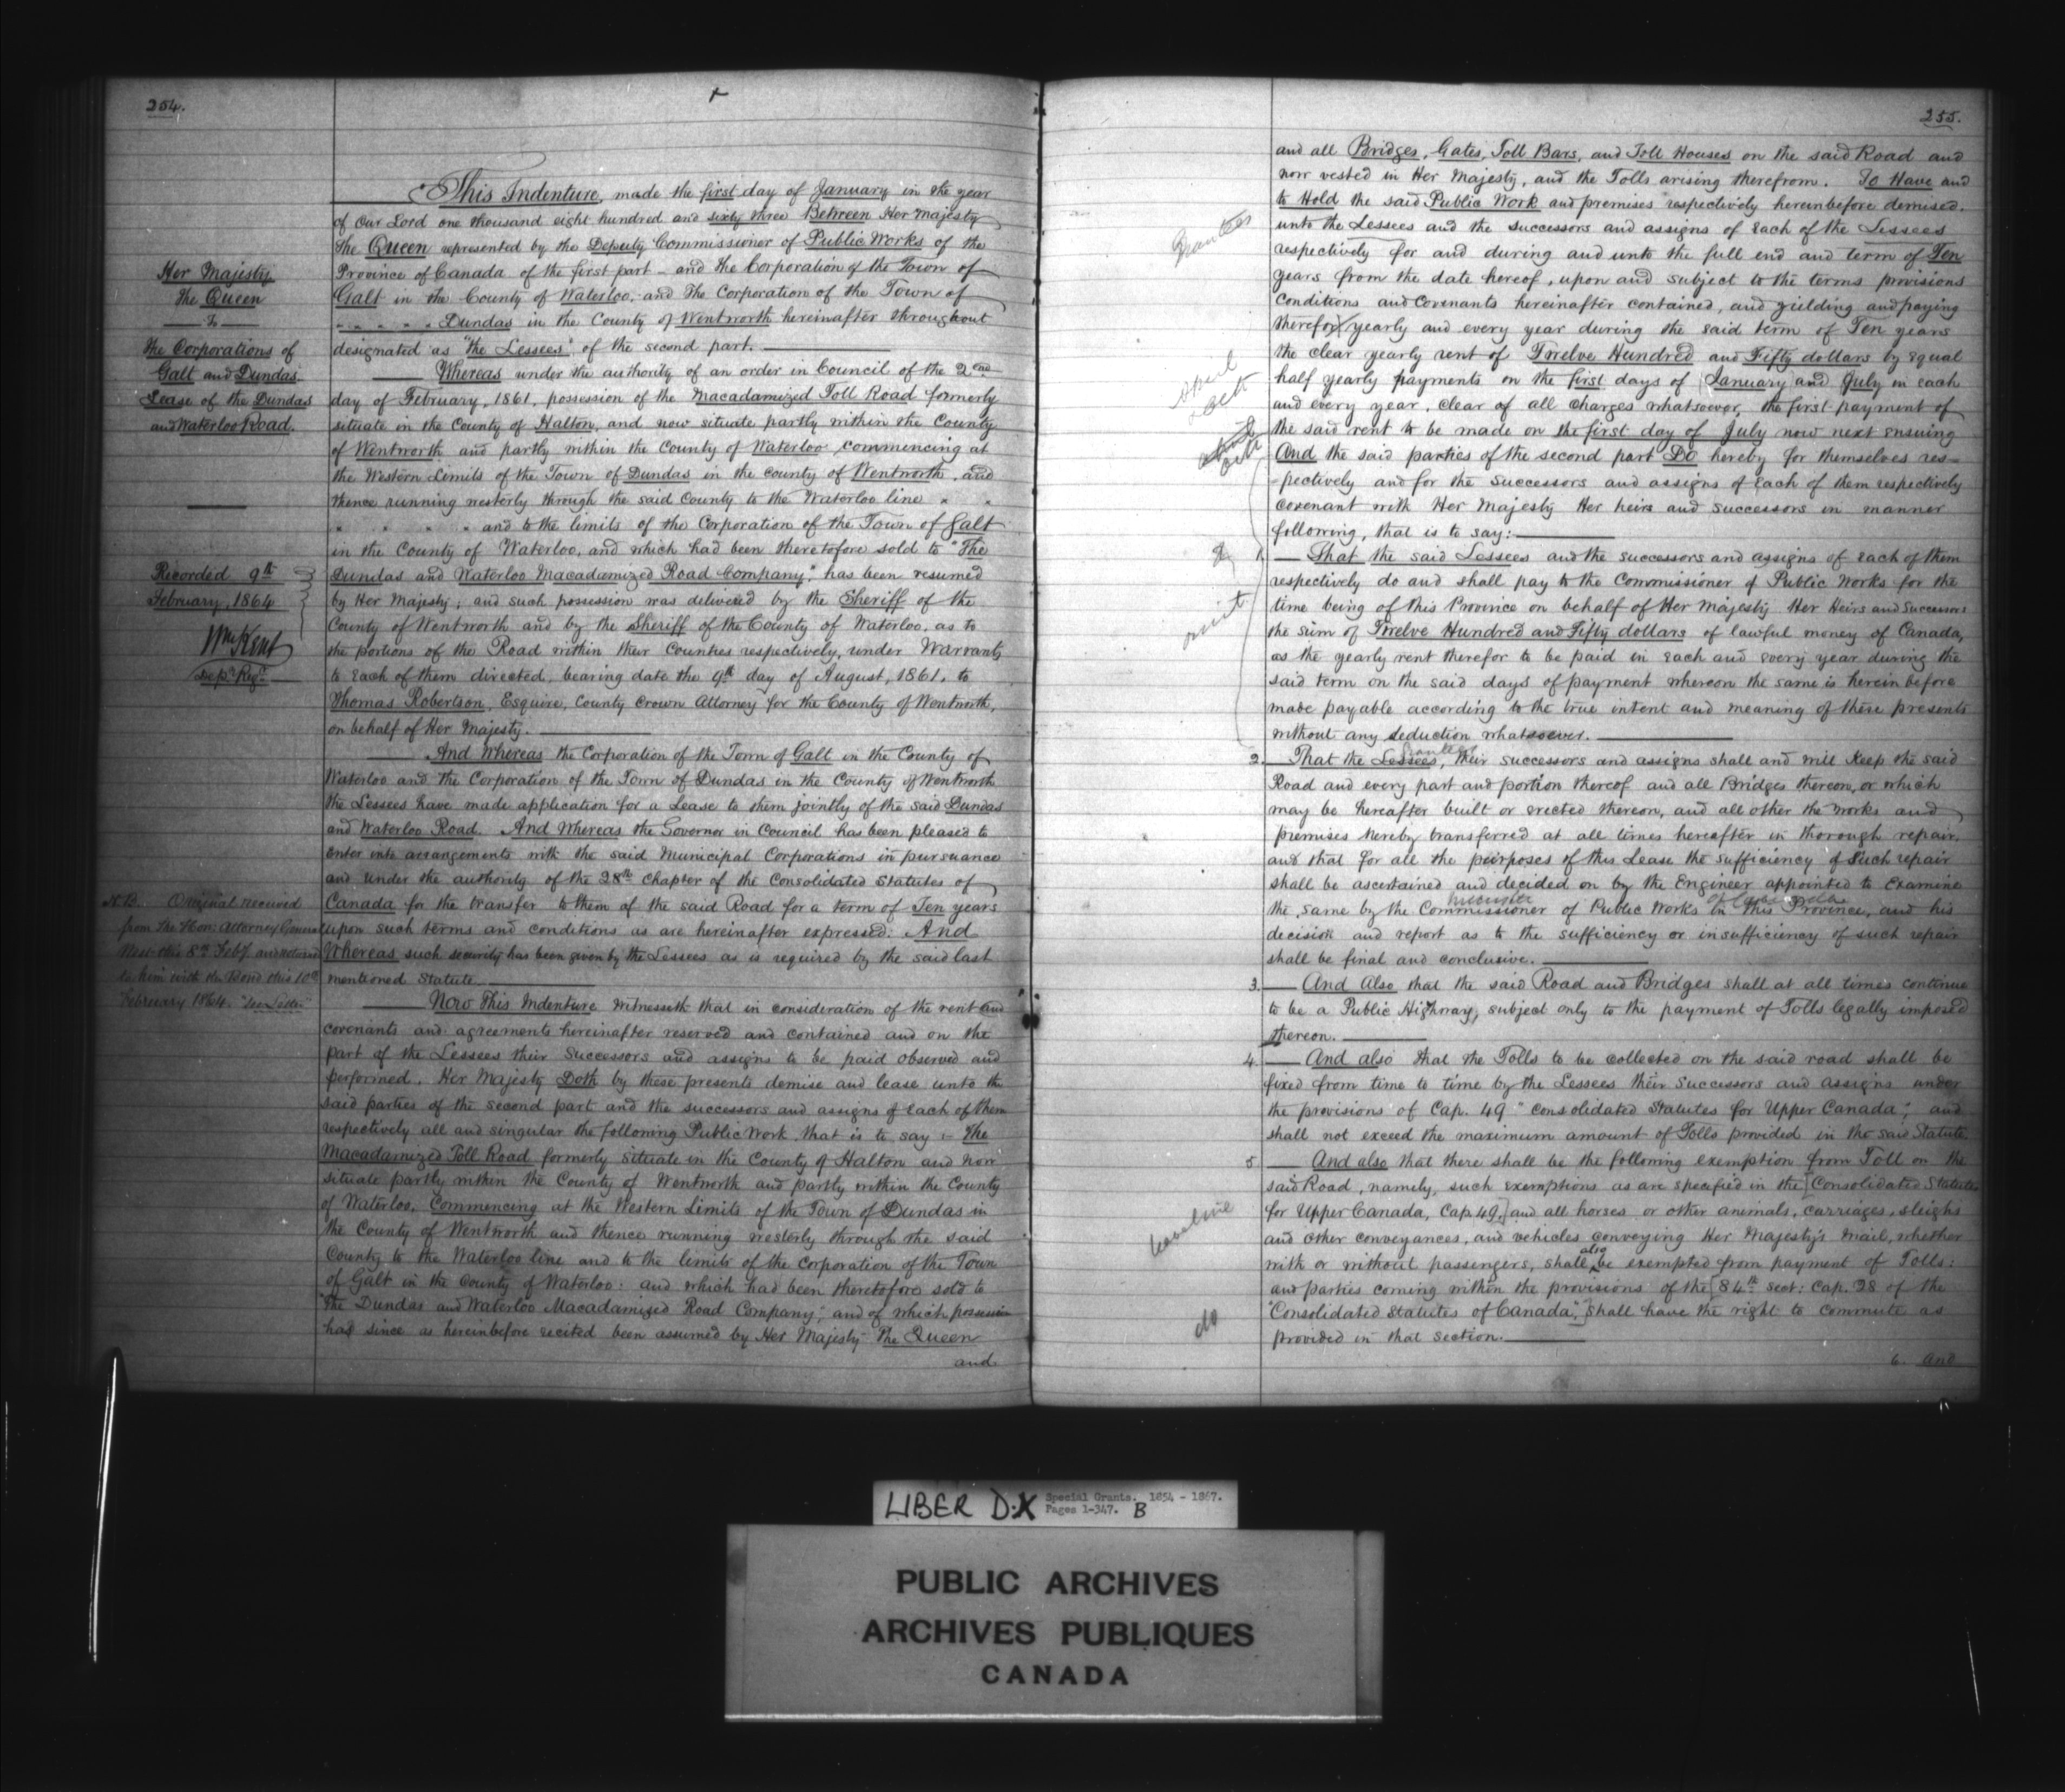 254.
Her Majesty
The Queen
— To —
The Corporations of
Galt and Dundas.
Lease of the Dundas
and Waterloo Road.
Recorded 9th
February, 1864
Wm Kent
Depy Regr
N.B. Original received
from the Hon: Attorney General
West this 8th Feby and returned
to him with the Bond this 10th
February 1864.
This Indenture, made the first day of January in the year
of Our Lord one thousand eight hundred and sixty three Between Her Majesty
The Queen represented by the Deputy Commissioner of Public Works of the
Province of Canada of the first part – and The Corporation of the Town of
Galt in the County of Waterloo, and The Corporation of the Town of
" " " " " Dundas in the County of Wentworth hereinafter throughout
designated as "the Lessees" of the second part.
Whereas under the authority of an order in Council of the 2nd
day of February, 1861, possession of the Macadamized Toll Road formerly
situate in the County of Halton, and now situate partly within the County
of Wentworth and partly within the County of Waterloo, commencing at
the Western Limits of the Town of Dundas in the County of Wentworth, and
thence running westerly through the said County to the Waterloo line " "
" " " " and to the limits of the Corporation of the Town of Galt
in the County of Waterloo, and which had been theretofore sold to "The
Dundas and Waterloo Macadamized Road Company," has been resumed
by Her Majesty; and such possession was delivered by the Sheriff of the
County of Wentworth and by the Sheriff of the County of Waterloo, as to
the portions of the Road within their Counties respectively, under Warrants
to each of them directed, bearing date the 9th day of August, 1861, to
Thomas Robertson, Esquire, County Crown Attorney for the County of Wentworth,
on behalf of Her Majesty.
And Whereas the Corporation of the Town of Galt in the County of
Waterloo and the Corporation of the Town of Dundas in the County of Wentworth
the Lessees have made application for a Lease to them jointly of the said Dundas
and Waterloo Road. And Whereas the Governor in Council has been pleased to
enter into arrangements with the said Municipal Corporations in pursuance
and under the authority of the 28th Chapter of the Consolidated Statutes of
Canada for the transfer to them of the said Road for a term of Ten years
upon such terms and conditions as are hereinafter expressed. And
Whereas such security has been given by the Lessees as is required by the said last
mentioned Statute.
Now This Indenture witnesseth that in consideration of the rent and
covenants and agreements hereinafter reserved and contained and on the
part of the Lessees their Successors and assigns to be paid observed and
performed, Her Majesty Doth by these presents demise and lease unto the
said parties of the second part and the successors and assigns of each of them
respectively all and singular the following Public Work, that is to say :– The
Macadamized Toll Road formerly situate in the County of Halton and now
situate partly within the County of Wentworth and partly within the County
of Waterloo, Commencing at the Western Limits of the Town of Dundas in
the County of Wentworth and thence running westerly through the said
County to the Waterloo line and to the limits of the Corporation of the Town
of Galt in the County of Waterloo: and which had been theretofore sold to
"The Dundas and Waterloo Macadamized Road Company", and of which possession
had since as hereinbefore recited been assumed by Her Majesty The Queen
and
255.
and all Bridges, Gates, Toll Bars, and Toll Houses on the said Road and
now vested in Her Majesty, and the Tolls arising therefrom. To Have and
to Hold the said Public Work and premises respectively hereinbefore demised.
Grantees
unto the Lessees and the successors and assigns of each of the Lessees
respectively for and during and unto the full end and term of Ten
years from the date hereof, upon and subject to the terms provisions
Conditions and Covenants hereinafter contained, and yielding and paying
therefor yearly and every year during the said term of Ten years
the clear yearly rent of Twelve Hundred and Fifty dollars by equal
April
Oct
half yearly payments on the first days of January and July in each
and every year, clear of all charges whatsoever, the first payment of
the said rent to be made on the first day of July now next ensuing
And the said parties of the second part Do hereby for themselves res-
-pectively and for the successors and assigns of each of them respectively
covenant with Her Majesty Her heirs and successors in manner
following, that is to say:
1. That the said Lessees and the successors and assigns of each of them
respectively do and shall pay to the Commissioner of Public Works for the
omit
time being of this Province on behalf of Her Majesty Her Heirs and Successors
the sum of Twelve Hundred and Fifty dollars of lawful money of Canada,
as the yearly rent therefor to be paid in each and every year during the
said term on the said days of payment whereon the same is herein before
made payable according to the true intent and meaning of these presents
without any deduction whatsoever.
Grantees
2. That the Lessees, their successors and assigns shall and will Keep the said
Road and every part and portion thereof and all Bridges thereon, or which
may be hereafter built or erected thereon, and all other the works and
premises hereby transferred at all times hereafter in thorough repair.
and that for all the purposes of this Lease the sufficiency of such repair
shall be ascertained and decided on by the Engineer appointed to Examine
the same by the Commissioner of Public Works in this Province, and his
decision and report as to the sufficiency or insufficiency of such repair
shall be final and conclusive.
3. And Also that the said Road and Bridges shall at all times continue
to be a Public Highway, subject only to the payment of Tolls legally imposed
thereon.
4. And also that the Tolls to be collected on the said road shall be
fixed from time to time by the Lessees their Successors and assigns under
the provisions of Cap. 49 "Consolidated Statutes for Upper Canada"; and
shall not exceed the maximum amount of Tolls provided in the said Statute
5 And also that there shall be the following exemption from Toll on the
said Road, namely, such exemptions as are specified in the [Consolidated Statutes
for Upper Canada, Cap 49,] and all horses or other animals, carriages, sleighs
and other conveyances, and vehicles conveying Her Majesty's Mail, whether
with or without passengers, shall also be exempted from payment of Tolls:
and parties coming within the provisions of the [84th sect: Cap. 28 of the
do
"Consolidated Statutes of Canada",] shall have the right to commute as
provided in that section.
6. And
LIBER D.X Special Grants. 1854 - 1867.
Pages 1-347. B
PUBLIC ARCHIVES
ARCHIVES PUBLIQUES
CANADA